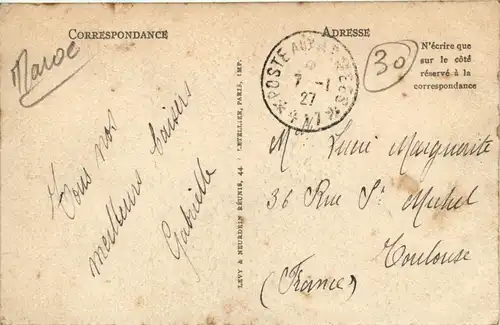 CORRESPONDANCE
ADRESSE
Maroc
30
N'écrire que
sur le côté
réservé à la
correspondance
POSTE AUX ARMÉES
7 -1
27
Tous nos
meilleurs baisers
Gabrielle
LEVY & NEURDEIN RÉUNIS, 44 LETELLIER, PARIS, IMP.
M Marguerite
36 Rue St Michel
Toulouse
(France)